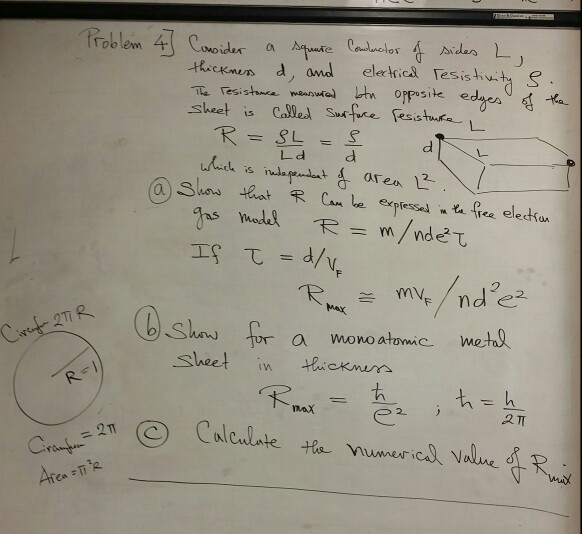 Problem 4] Consider a square Conductor of sides L,
thickness d, and electrical resistivity ρ.
The resistance measured btn opposite edges of the
sheet is called surface resistance
R = ρL / Ld = ρ / d
L
d
L
which is independent of area L².
(a) Show that R can be expressed in the free electron
gas model R = m/nde²τ
If τ = d/V_F
R_max ≅ mV_F / nd²e²
(b) Show for a monoatomic metal
sheet in thickness
R_max = ħ / e² ; ħ = h / 2π
(c) Calculate the numerical value of R_max
L
2πR
R=1
= 2π
Area = π²R